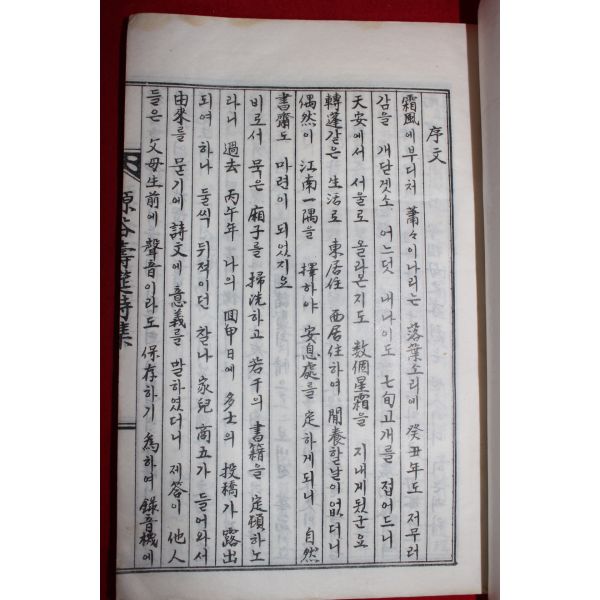 序文
霜風에부디처 蕭々이나리는 落葉소리에 癸丑年도 저무러
감을 개단겟소 어느덧 내나이도 七旬고개를 접어드니
天安에서 서울로 올라온지도 数個星霜을 지내게됬군요
轉蓬같은 生活로 東居住 西居住하여 閒養할날이없더니
偶然이 江南一隅을 擇하야 安息處를 定하게되니 自然
書齋도 마련이 되었지요
비로서 묵은 廟子를 掃洗하고 若干의 書籍을 定頓하노
라니 過去 丙午年 나의 回甲日에 多士의 投稿가 露出
되여 하나 둘씩 뒤젹이던 찰나 家兒 商五가 들어와서
由來를 묻기에 詩文에 意義를 말하였더니 제答이 他人
들은 父母生前에 聲音이라도 保存하기 爲하여 錄音機에
源谷壽筵詩集